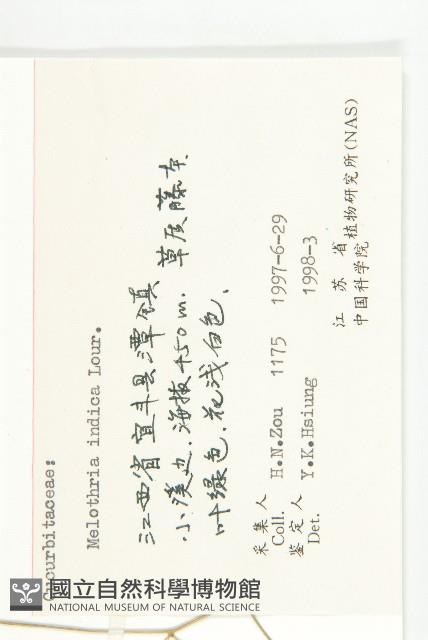 Cucurbitaceae:
Melothria indica Lour.
江西省宜丰县潭山镇
小溪边.海拔450m. 草质藤本
叶绿色.花浅白色.
采集人
Coll. H.N.Zou 1175 1997-6-29
鉴定人
Det. Y.K.Hsiung 1998-3
江苏省植物研究所(NAS)
中国科学院
國立自然科學博物館
NATIONAL MUSEUM OF NATURAL SCIENCE